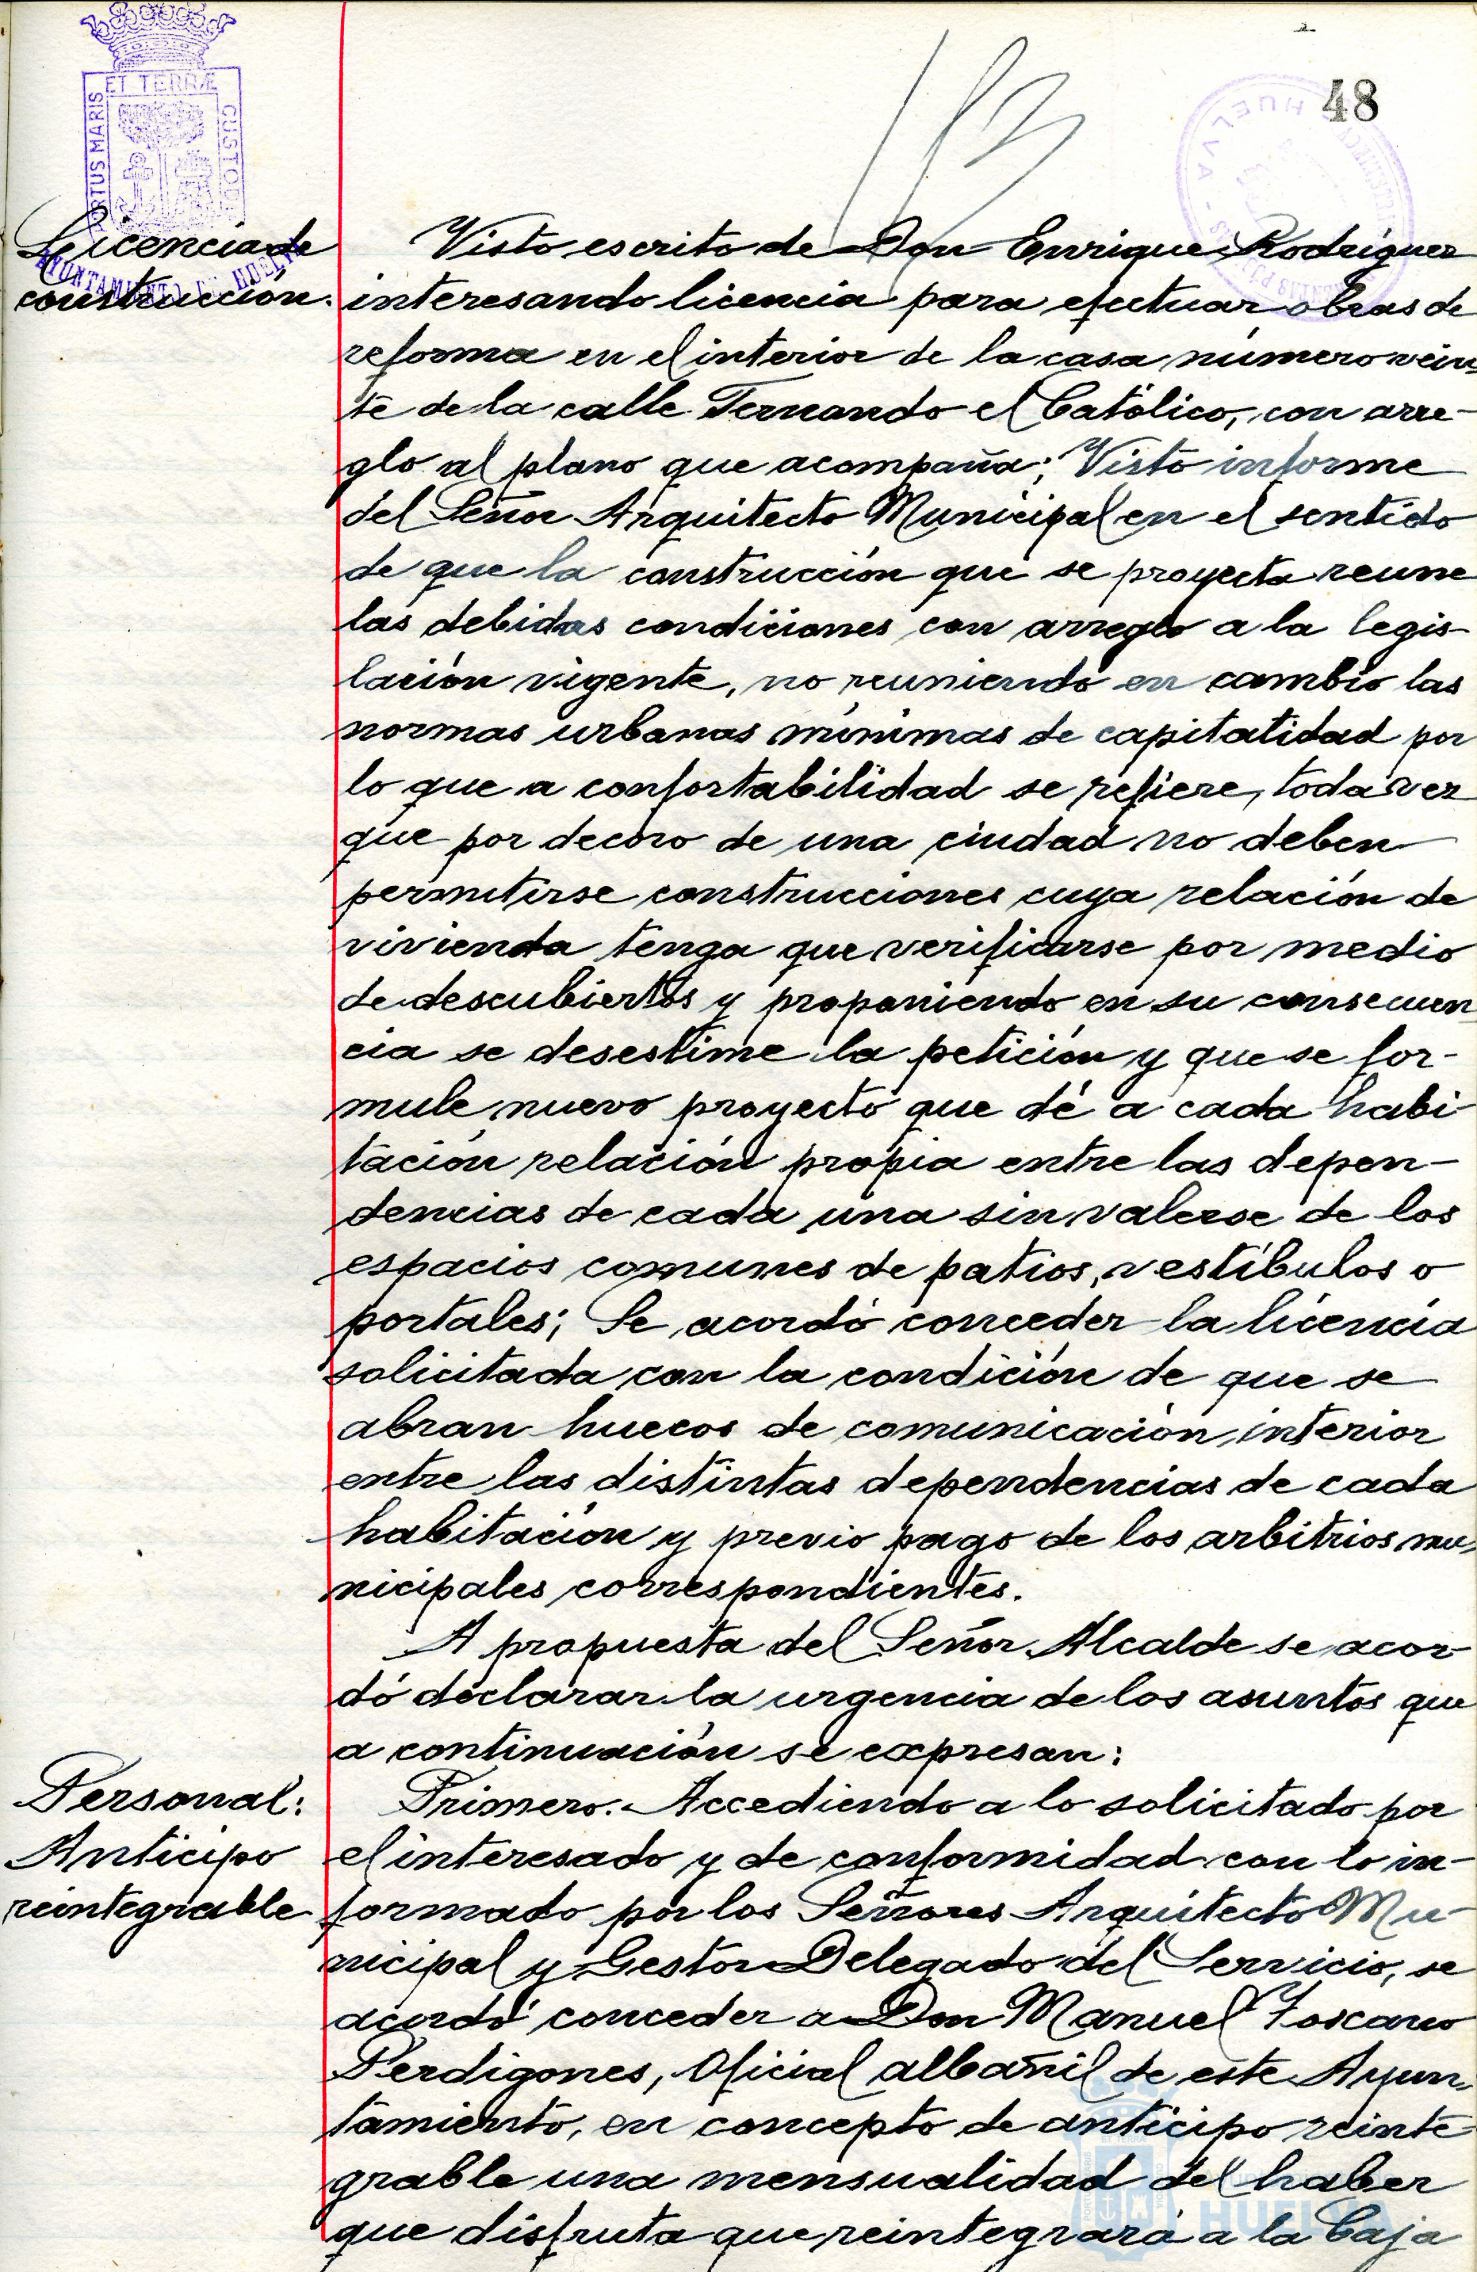 48
ET TERRÆ
PORTUS MARIS
CUSTODIA
AYUNTAMIENTO DE HUELVA
HUELVA
Licencia de
construcción.
Visto escrito de Don Enrique Rodríguez
interesando licencia para efectuar obras de
reforma en el interior de la casa número vein-
te de la calle Fernando el Católico, con arre-
glo al plano que acompaña; Visto informe
del Señor Arquitecto Municipal en el sentido
de que la construcción que se proyecta reune
las debidas condiciones con arreglo a la legis-
lación vigente, no reuniendo en cambio las
normas urbanas mínimas de capitalidad por
lo que a confortabilidad se refiere, toda vez
que por decoro de una ciudad no deben
permitirse construcciones cuya relación de
vivienda tenga que verificarse por medio
de descubiertos y proponiendo en su consecuen-
cia se desestime la petición y que se for-
mule nuevo proyecto que dé a cada habi-
tación relación propia entre las depen-
dencias de cada una sin valerse de los
espacios comunes de patios, vestíbulos o
portales; Se acordó conceder la licencia
solicitada con la condición de que se
abran huecos de comunicación interior
entre las distintas dependencias de cada
habitación y previo pago de los arbitrios mu-
nicipales correspondientes.
A propuesta del Señor Alcalde se acor-
dó declarar la urgencia de los asuntos que
a continuación se expresan:
Personal:
Anticipo
reintegrable
Primero.- Accediendo a lo solicitado por
el interesado y de conformidad con lo in-
formado por los Señores Arquitecto Mu-
nicipal y Gestor Delegado del Servicio, se
acordó conceder a Don Manuel Toscano
Perdigones, Oficial albañil de este Ayun-
tamiento, en concepto de anticipo reinte-
grable una mensualidad del haber
que disfruta que reintegrará a la Caja
HUELVA